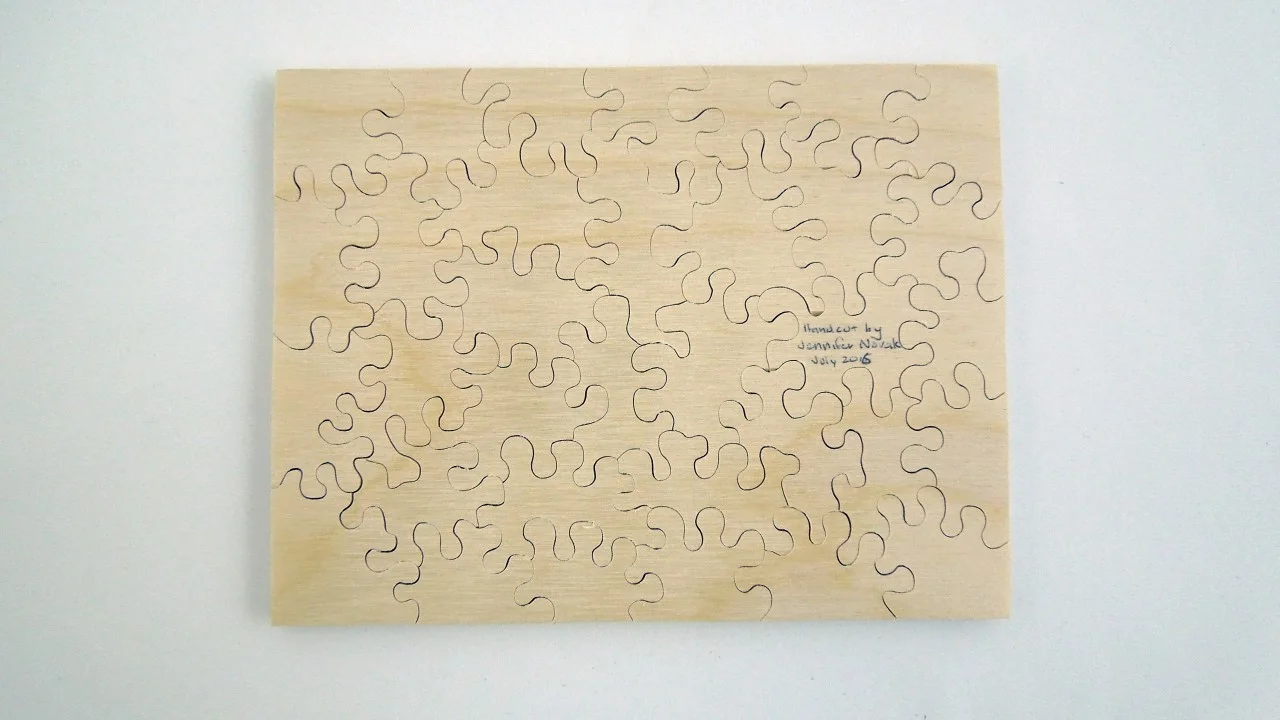 Handcut by
Jennifer Novak
July 2016